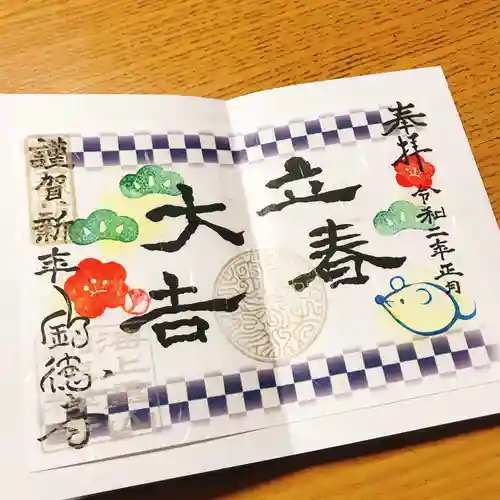 奉拝
令和二年正月
立春
大吉
謹賀新年